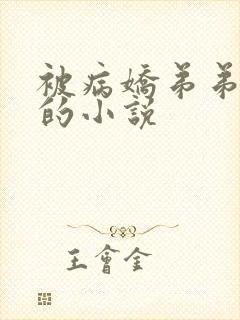 被病嬌弟弟
的小說
王會全